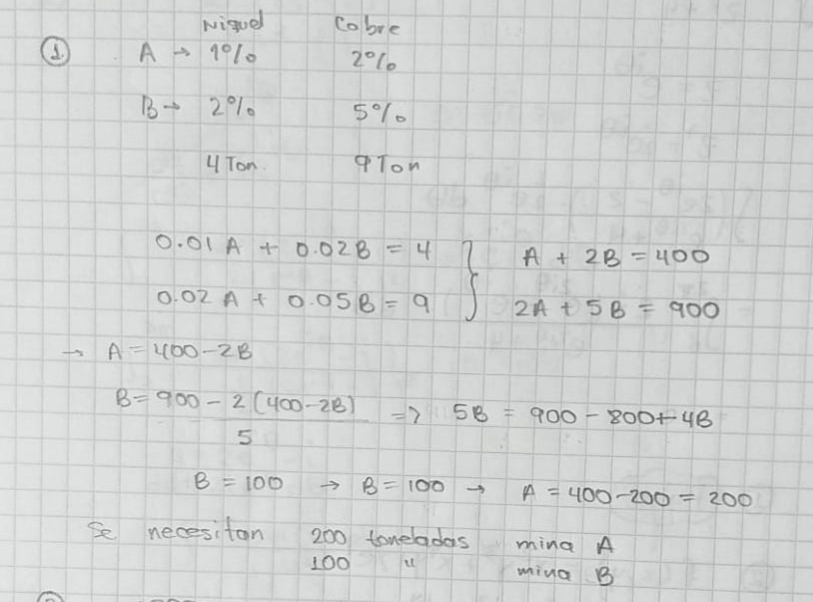 Niquel Cobre
① A → 1% 2%
B → 2% 5%
4 Ton 9 Ton
0.01 A + 0.02B = 4 } A + 2B = 400
0.02 A + 0.05B = 9 2A + 5B = 900
→ A = 400-2B
B = 900 - 2(400-2B) / 5 => 5B = 900 - 800 + 4B
B = 100 → B = 100 → A = 400-200 = 200
Se necesitan 200 toneladas mina A
100 " mina B